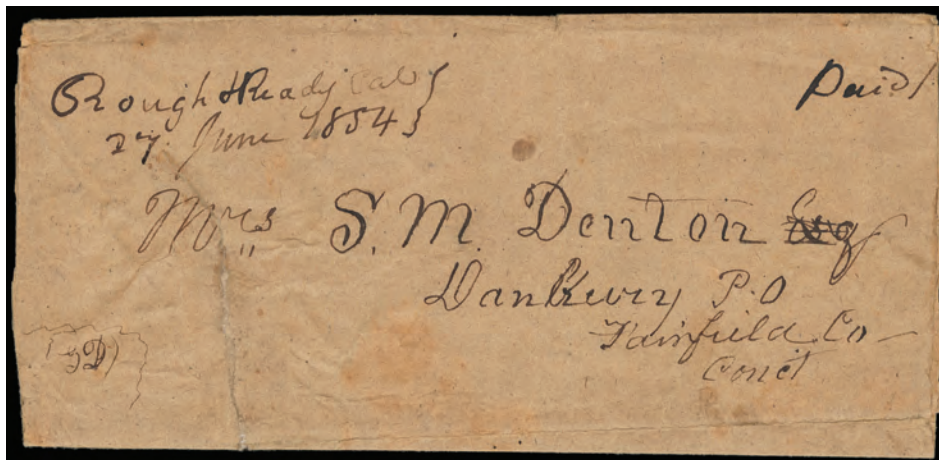 Rough & Ready Cal
27 June 1854
Paid
Mrs S. M. Denton Esq
Danbury P.O
Fairfield Co
Conct